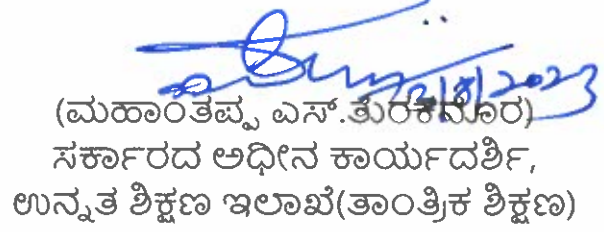 2/8/2023
(ಮಹಾಂತಪ್ಪ ಎಸ್.ತುರಕನೂರ)
ಸರ್ಕಾರದ ಅಧೀನ ಕಾರ್ಯದರ್ಶಿ,
ಉನ್ನತ ಶಿಕ್ಷಣ ಇಲಾಖೆ(ತಾಂತ್ರಿಕ ಶಿಕ್ಷಣ)